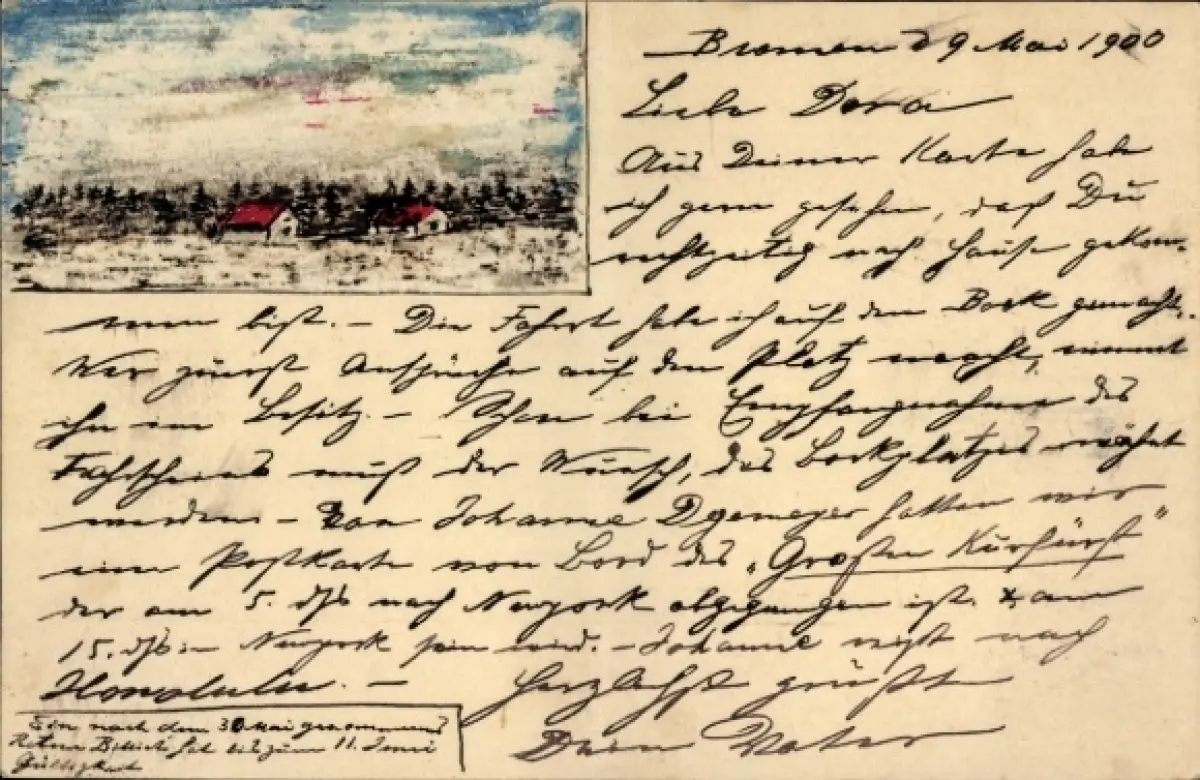 Bremen d 9 Mai 1900
Liebe Dora
Aus Deiner Karte habe
ich gern gesehen, daß Du
rechtzeitig nach Hause gekom-
men bist. – Die Fahrt habe ich auf dem Bock gemacht.
Wer zuerst Ansprüche auf den Platz macht, nimmt
ihn in Besitz. – Schon bei Empfangnahme des
Fahrscheins muß der Wunsch, des Bockplatzes erwähnt
werden. – Von Johanne hatten wir
eine Postkarte von Bord des „Großen Kurfürst“
der am 5. ds nach Newyork abgegangen ist & am
15. ds in Newyork sein wird. – Johanne reist nach
Honolulu. – Herzlichst grüßt
Dein Vater
Ein nach dem 30 Mai genommenes
Retour Billet hat bis zum 11. Juni
Gültigkeit